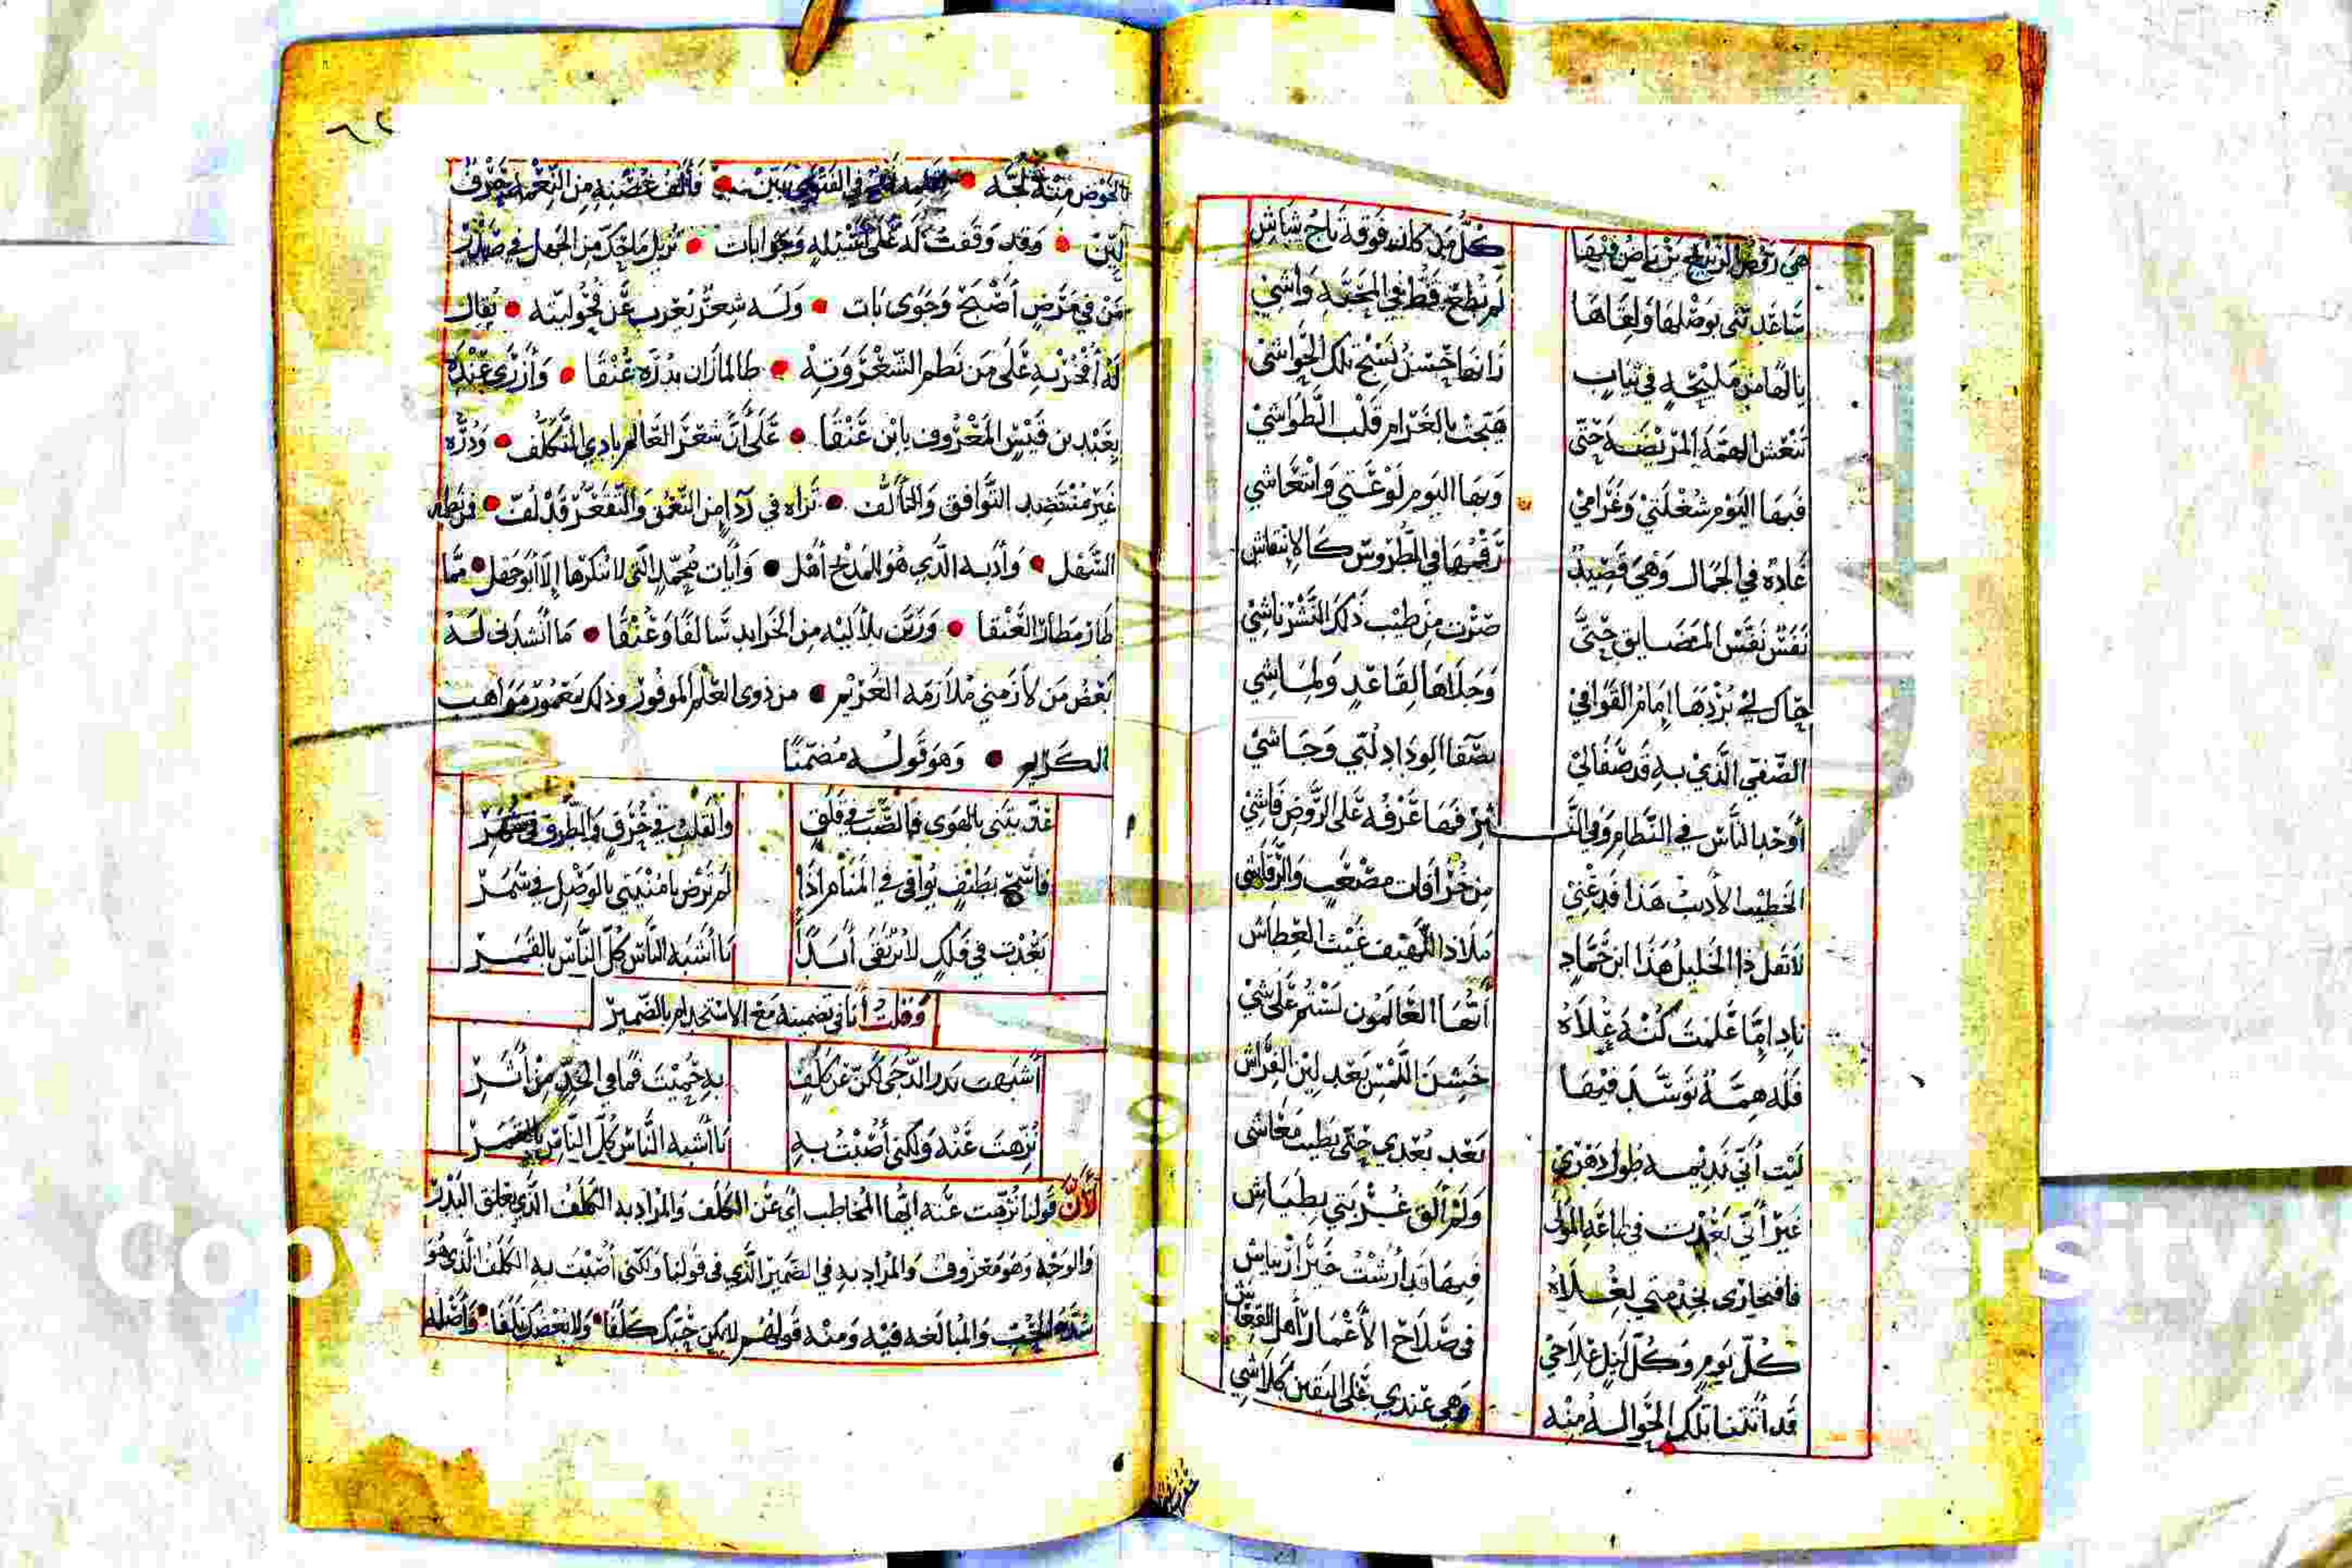 هي روض الربيع بل رياض فيها كل من كان فوقه تاج شاش
ساعدتني بوصلها ولقاها لم تطع قط في المحبة واشي
يا لها من مليحة في ثياب زانها حسن نسج تلك الحواشي
تنعش الهمة المريضة حتى هيجت بالغرام قلب الطواشي
فبها اليوم شغلتي وغرامي وبها اليوم لوعتي وانتعاشي
غادة في الجمال وهي قصيد رقمها في الطروس كالانتقاش
نفست نفس المضايق حتى صرت من طيب ذلك النشر ناشي
حاك لي بردها إمام القوافي وجلاها لقاعد ولماشي
الصفي الذي به قد صفا لي بصفا الوداد لبي وجاشي
أوحد الناس في النظام وفي النثر فها عرفه على الروض فاشي
الخطيب الأديب هذا فدعني من خرافات مصعب والرقاشي
لا تقل ذا الخليل هذا ابن حماد ملاذ اللهيف غيث العطاش
ناد إما علمت كنه علاه أيها العالمون لستم على شي
فله همة توسد فيها خشن اللمس بعد لين الفراش
ليت أني نديمه طول دهري بعد بعدي حتى يطيب معاشي
غير أني بعدت في طاعة المولى ولم ألق غربتي بطياش
فافتخاري بخدمتي لعلاه فيها قد أرشت خير ارتياش
كل يوم وكل ليل علاجي في صلاح الأغمار أهل القعاش
قد أتتنا تلك الحوالة منه وهي عندي على اليقين كلاشي
٦٢
بالخوض منته لجه في الفتوى بيّن فألف غصنه من النعمة بحرف
لين وقد وقفت له على أسئلة وجوابات تزيل ما حك من الجهل في صدر
من في مرض أصبح وجوى بات وله شعر يعرب عن فحوليته يقال
له أفخر به على من نظم الشعر ورويه طالما زان بدره عنقا وأزرى عنده
بعبد بن قيس المعروف بابن عنقا على أن شعر العالم بادي التكلف ودره
غير منتضد التوافق والتألف تراه في رداء من التعمق والتقعر قد لف فنظمه
السهل وأدبه الذي هو للمدح أهل وآيات محمد التي لا ينكرها إلا أبو جهل مما
طار مطار العنقا وزين بلآليه من الخرايد سالفا وعنقا ما أنشدني له
بعض من لازمني ملازمة الغريم من ذوي العلم الموفور وذلك معمور مواهب
الكريم وهو قوله مضمنا
عذبتني بالهوى فالصب في قلق والقلب في حرق والطرف في سهر
فاسمح بطيف يوافي في المنام إذا لم ترض يا منيتي بالوصل في سمر
بعدت في فلك لا ترتقى أبدا ما أشبه الناس كل الناس بالقمر
وقلت أنا في تضمينه مع الاستخدام بالضمير
أشبهت بدر الدجى لكن عن كلف به حميت فما في الخد من أثر
نزهت عنه ولكني أصبت به ما أشبه الناس كل الناس بالقمر
لأن قولنا نزهت عنه أيها المخاطب أي عن الكلف والمراد به الكلف الذي يعلق البدر
والوجه وهو معروف والمراد به في الضمير الذي في قولنا ولكني أصبت به الكلف الذي هو
شدة الحب والمبالغة فيه ومنه قولهم لا يكن حبك كلفا ولا بغضك تلفا وأصله